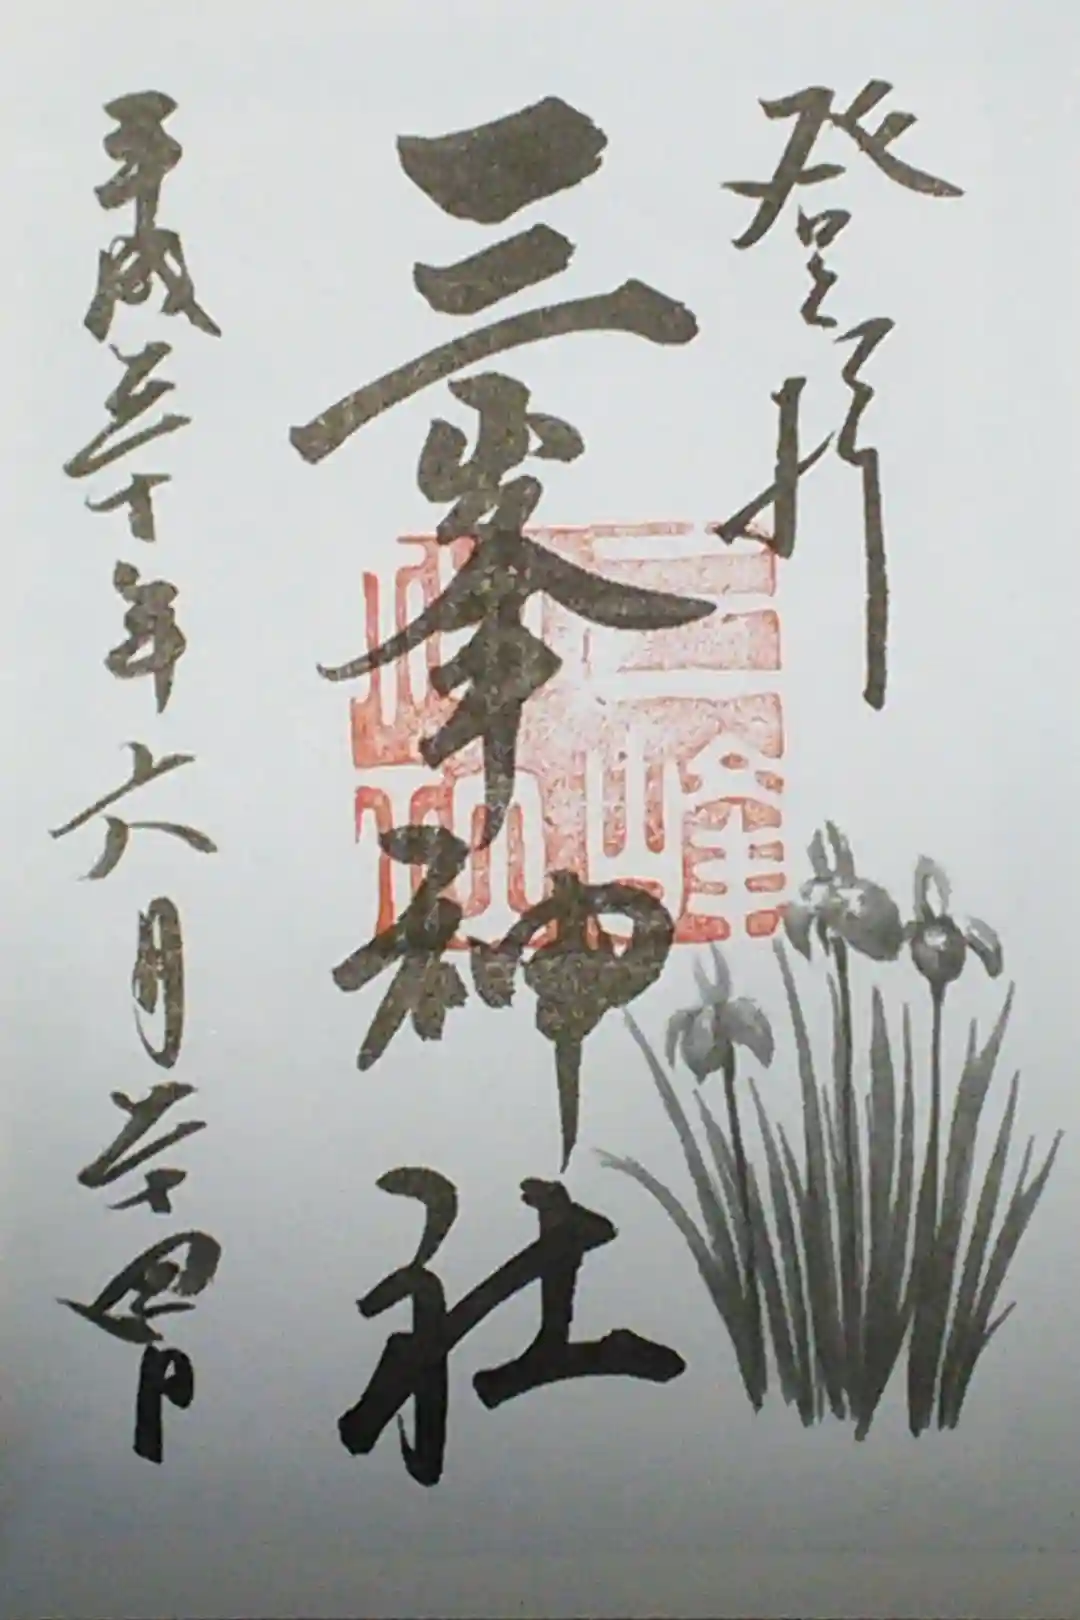 登拝
三峯神社
平成三十年六月二十四日